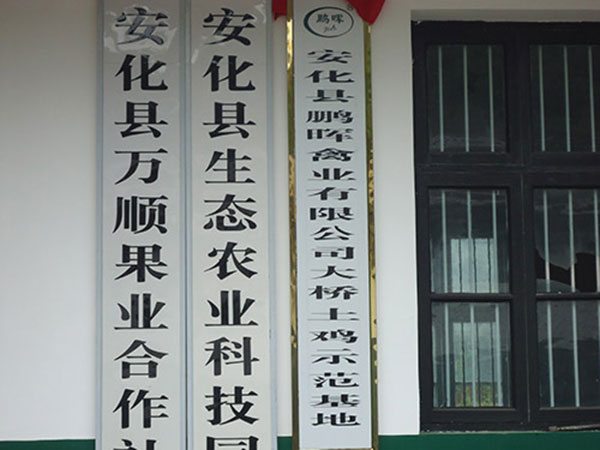 安化县万顺果业合作社
安化县生态农业科技园
鹏晖
安化县鹏晖禽业有限公司大桥土鸡示范基地